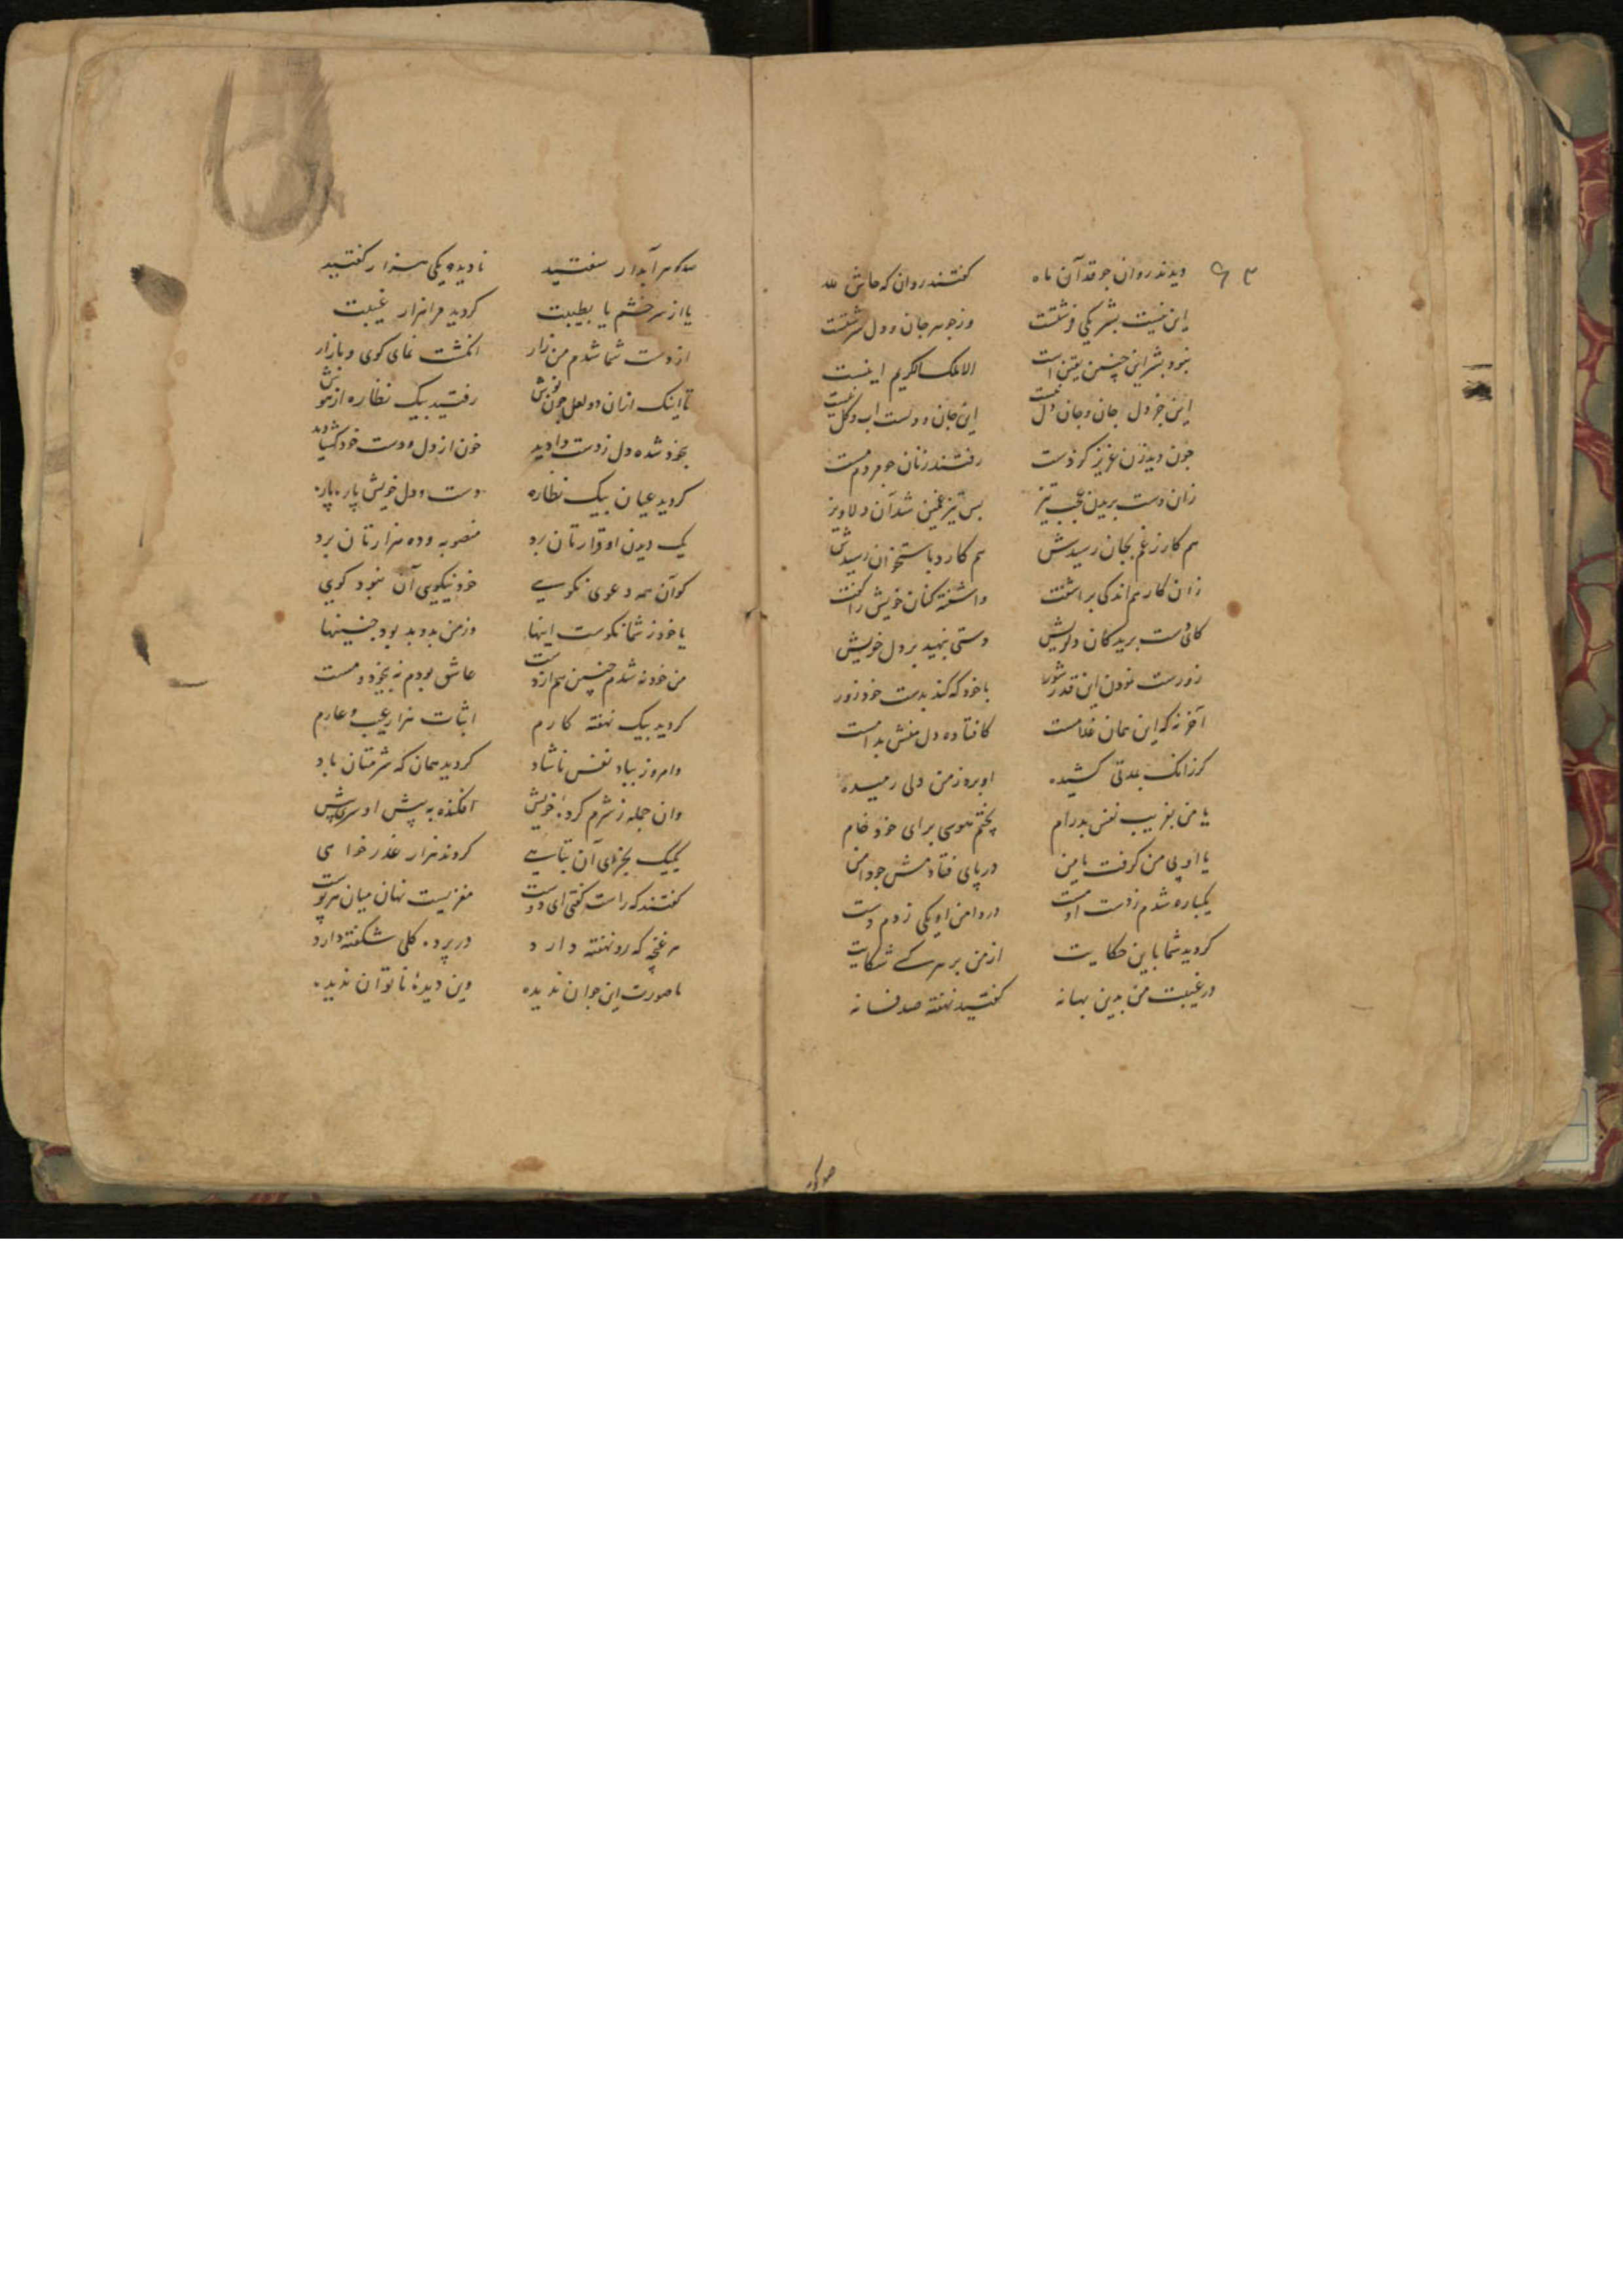 دیدند روان چو قد آن ماه گفتند روان که حاش لله
این نیست بشر یکی فرشتست وز جوهر جان و دل سرشتست
نبود بشر این چنین یقین است الا ملک الکریم اینست
این جز دل جان و جان دل نیست این جان و دلست اب و گل نیست
چون دید زن عزیز کز دست رفتند زنان چو مردم مست
زان دست بریدن عجب تیز بس تیز غمین شد آن دلاویز
هم کار ز غم بجان رسیدش هم کارد باستخوان رسیدش
زان کار هم اندکی براشفت واشفته کنان خویش را گفت
کای دست بریدکان دلریش دستی بنهید بر دل خویش
زورست نمودن این قدر شور با خود که کند بدست خود زور
آخر نه که این همان غلامست کافتاده دل منش بدامست
کر زانک بمدتی کشیده او برد ز من دلی رمیده
یا من بفریب نفس بدرام پختم هوسی برای خود خام
یا او پی من گرفت یا من در پای فتادمش چو دامن
یکباره شدم ز دست او مست در دامن او یکی زدم دست
کردید شما باین حکایت از من بر هر کسے شکایت
در غیبت من بدین بهانه گفتید نهفته صد فسانه
صد گوهر
صد گوهر آبدار سفتید نادیده یکی هزار گفتید
یا از سر خشم یا بطیبت کردید مرا هزار غیبت
از دست شما شدم من زار انگشت نمای کوی و بازار
تا اینک ازان دو لعل چون نوش رفتید بیک نظاره از هوش
بیخود شده دل ز دست دادید خون از دل و دست خود گشادید
کردید عیان بیک نظاره دست و دل خویش پاره پاره
یک دیدن او قرارتان برد منصوبه و ده هزارتان برد
کو آن همه دعوی نکویے خود نیکویی آن نبود کویی
یا خود ز شما نکوست اینها وز من بد و بد بود چنینها
من خود نه شدم چنین هم از دست عاشق بودم نه بیخود و مست
کردید بیک نهفته کارم اثبات هزار عیب و عارم
وامروز بیاد نفس ناشاد کردید همان که شرمتان باد
وان جمله ز شرم کرده خویش افکنده به پیش او سر خویش
یکیک بجزای آن تباهے کردند هزار عذر خواهی
گفتند که راست گفتی ای دوست مغزیست نهان میان هر پوست
هر غنچه که رو نهفته دارد در پرده گلی شکفته دارد
ما صورت این جوان ندیده وین دیدۀ ناتوان ندیده